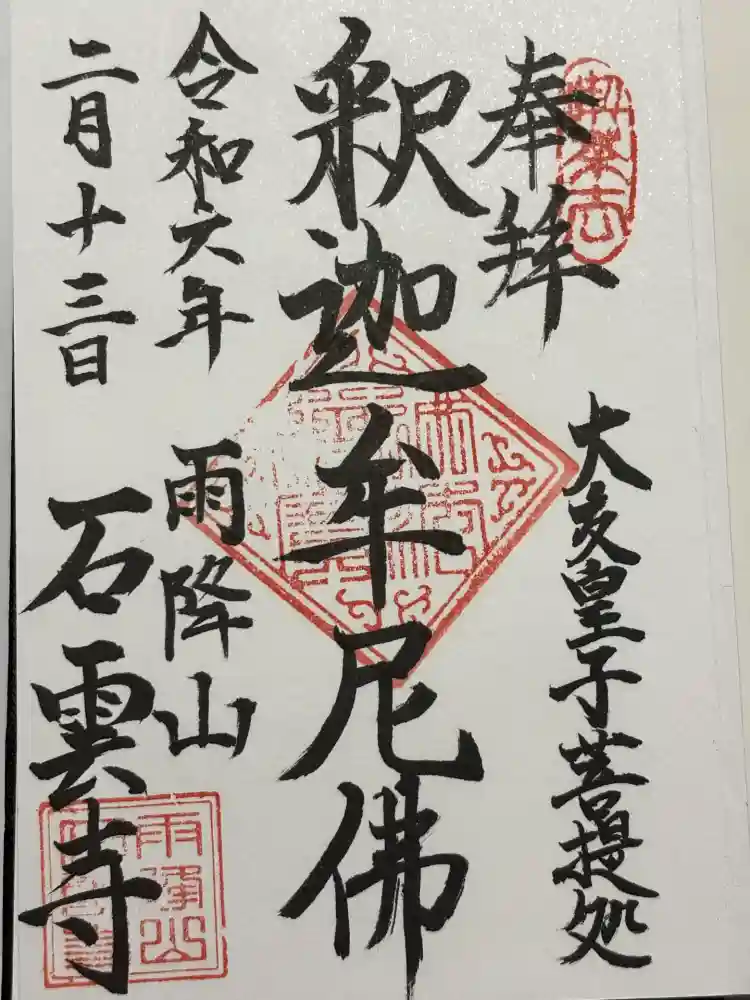 奉拝
大友皇子菩提処
釈迦牟尼佛
令和六年
二月十三日
雨降山
石雲寺
雨降山